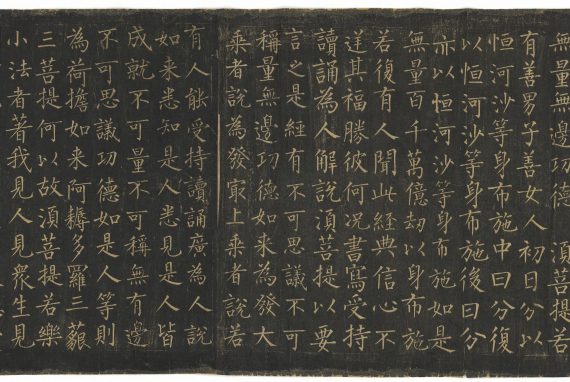 無量無邊功德 須菩提若
有善男子善女人初日分以
恒河沙等身布施中日分復
以恒河沙等身布施後日分
亦以恒河沙等身布施如是
無量百千萬億劫以身布施
若復有人聞此經典信心不
逆其福勝彼何況書寫受持
讀誦為人解說須菩提以要
言之是經有不可思議不可
稱量無邊功德如来為發大
乗者說為發冣上乗者說若
有人能受持讀誦廣為人說
如来悉知是人悉見是人皆
成就不可量不可稱無有邊
不可思議功德如是人等則
為荷擔如来阿耨多羅三藐
三菩提何以故須菩提若樂
小法者著我見人見衆生見